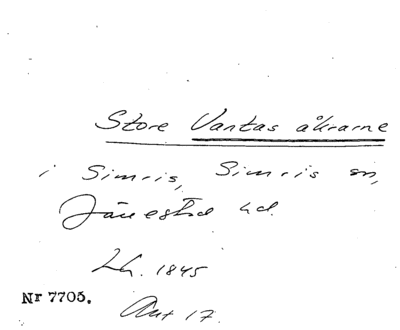 Store Vantas åkrarne
i Simris, Simris sn,
Järrestad hd.
Lh. 1845
Nr 7705.
Akt 17.